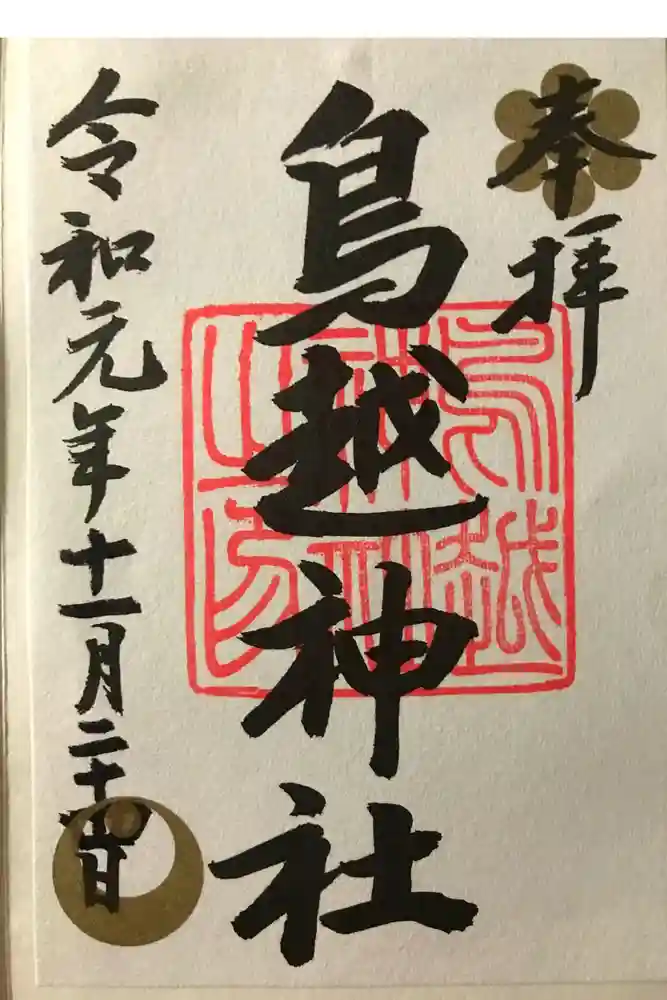 奉拝
鳥越神社
令和元年十一月二十日
鳥越
神社
之印